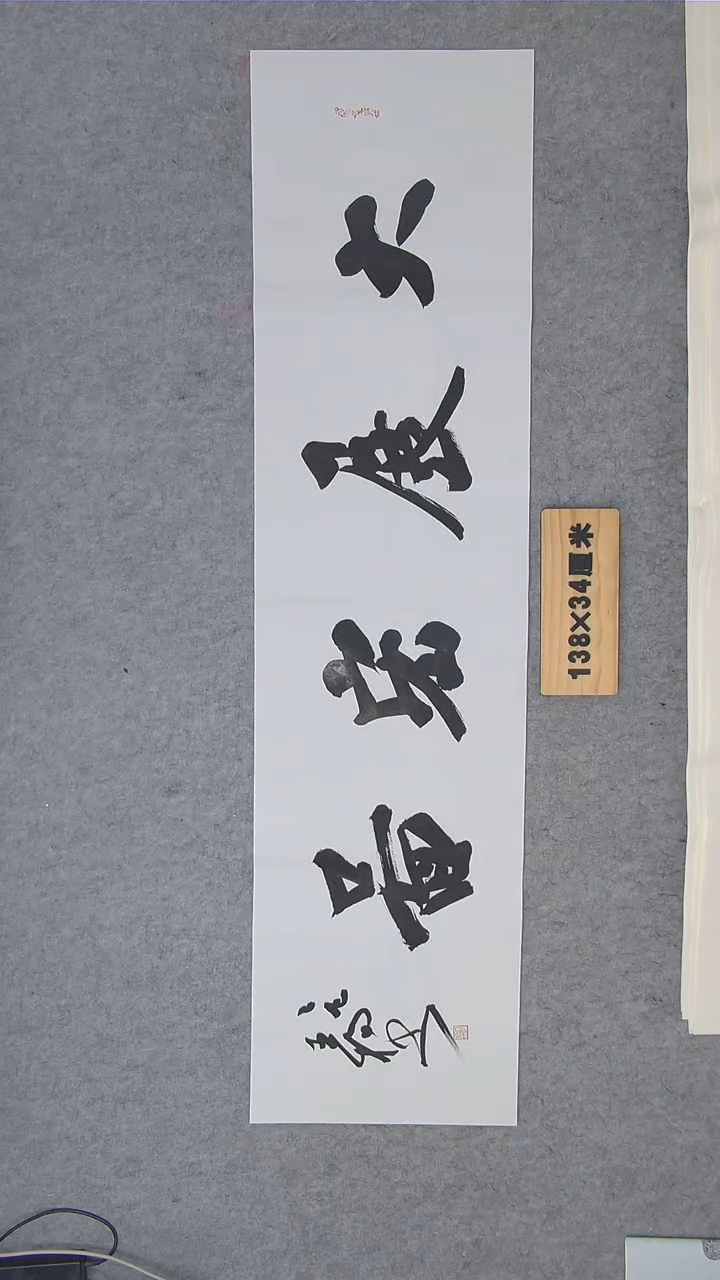 大度宏量
138×34厘米